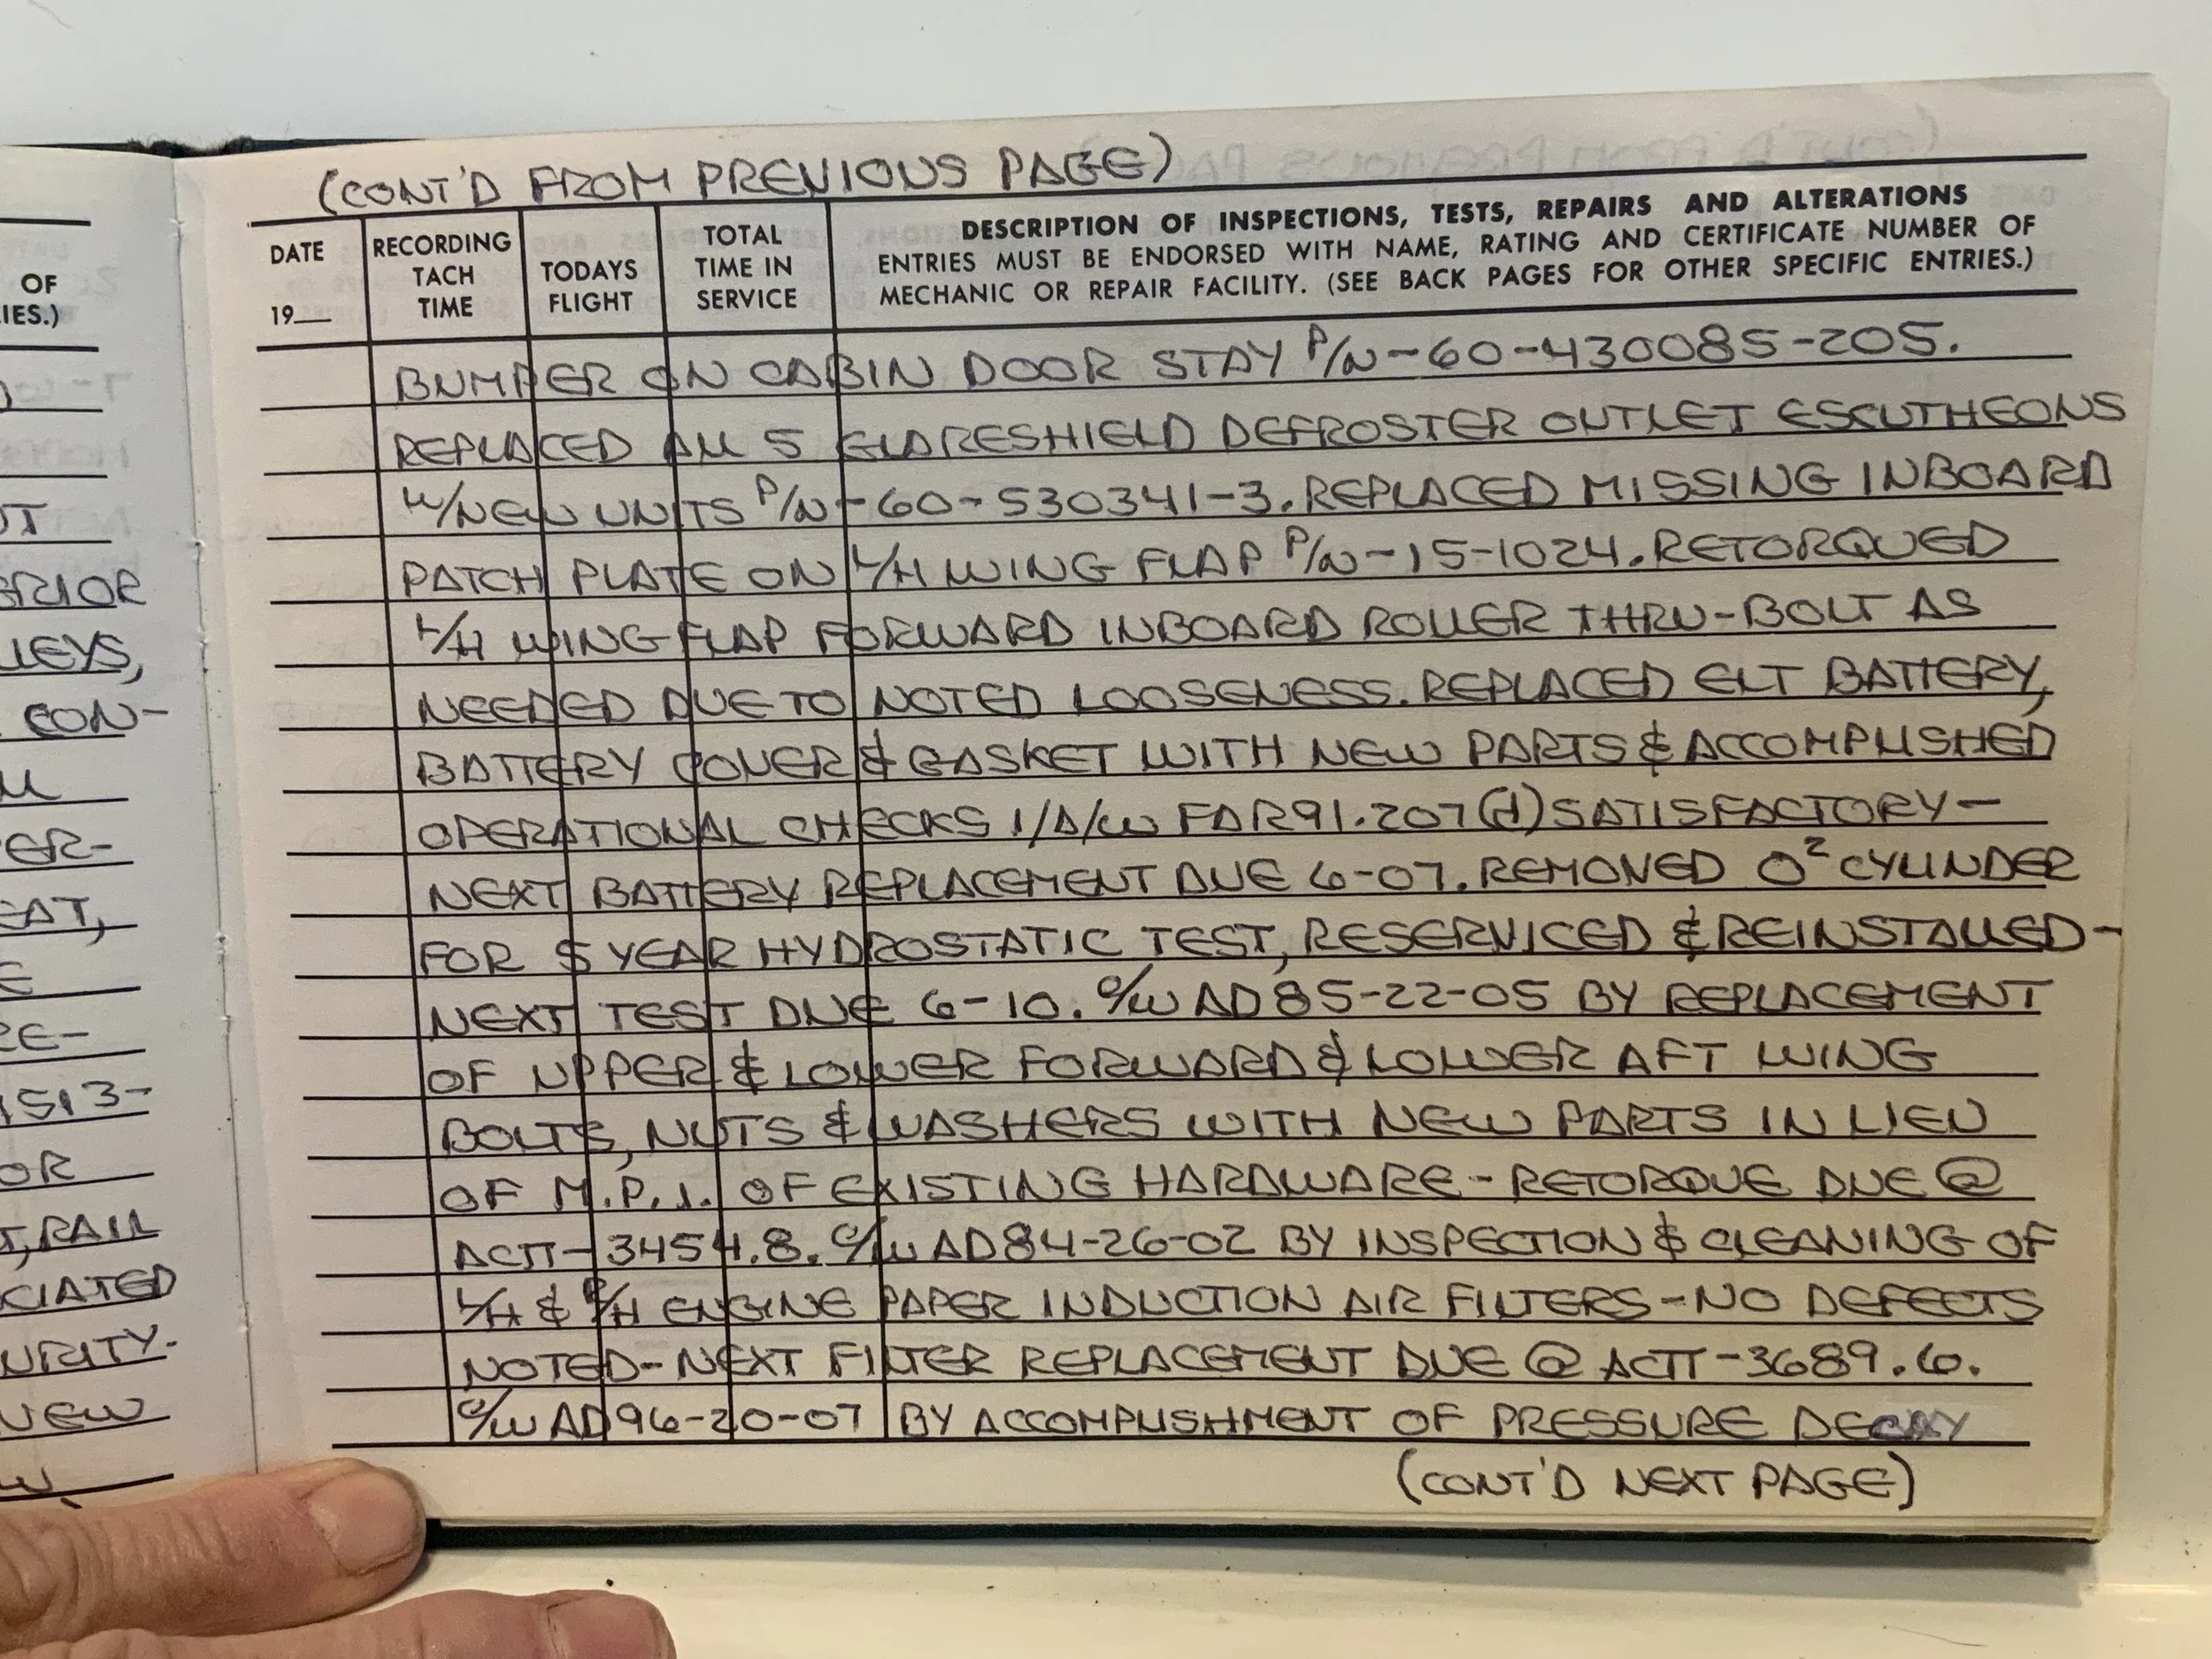 (CONT'D FROM PREVIOUS PAGE)
DATE
19__
RECORDING
TACH
TIME
TODAYS
FLIGHT
TOTAL
TIME IN
SERVICE
DESCRIPTION OF INSPECTIONS, TESTS, REPAIRS AND ALTERATIONS
ENTRIES MUST BE ENDORSED WITH NAME, RATING AND CERTIFICATE NUMBER OF
MECHANIC OR REPAIR FACILITY. (SEE BACK PAGES FOR OTHER SPECIFIC ENTRIES.)
BUMPER ON CABIN DOOR STAY P/N-60-430085-205.
REPLACED ALL 5 GLARESHIELD DEFROSTER OUTLET ESCUTHEONS
W/NEW UNITS P/N-60-530341-3. REPLACED MISSING INBOARD
PATCH PLATE ON L/H WING FLAP P/N-15-1024. RETORQUED
L/H WING FLAP FORWARD INBOARD ROLLER THRU-BOLT AS
NEEDED DUE TO NOTED LOOSENESS. REPLACED ELT BATTERY,
BATTERY COVER & GASKET WITH NEW PARTS & ACCOMPLISHED
OPERATIONAL CHECKS I/A/W FAR 91.207(d) SATISFACTORY-
NEXT BATTERY REPLACEMENT DUE 6-07. REMOVED O² CYLINDER
FOR 5 YEAR HYDROSTATIC TEST, RESERVICED & REINSTALLED-
NEXT TEST DUE 6-10. C/W AD 85-22-05 BY REPLACEMENT
OF UPPER & LOWER FORWARD & LOWER AFT WING
BOLTS, NUTS & WASHERS WITH NEW PARTS IN LIEU
OF M.P.I. OF EXISTING HARDWARE-RETORQUE DUE @
ACTT-3454.8. C/W AD 84-26-02 BY INSPECTION & CLEANING OF
L/H & R/H ENGINE PAPER INDUCTION AIR FILTERS-NO DEFECTS
NOTED-NEXT FILTER REPLACEMENT DUE @ ACTT-3689.6.
C/W AD 96-20-07 BY ACCOMPLISHMENT OF PRESSURE DECAY
(CONT'D NEXT PAGE)